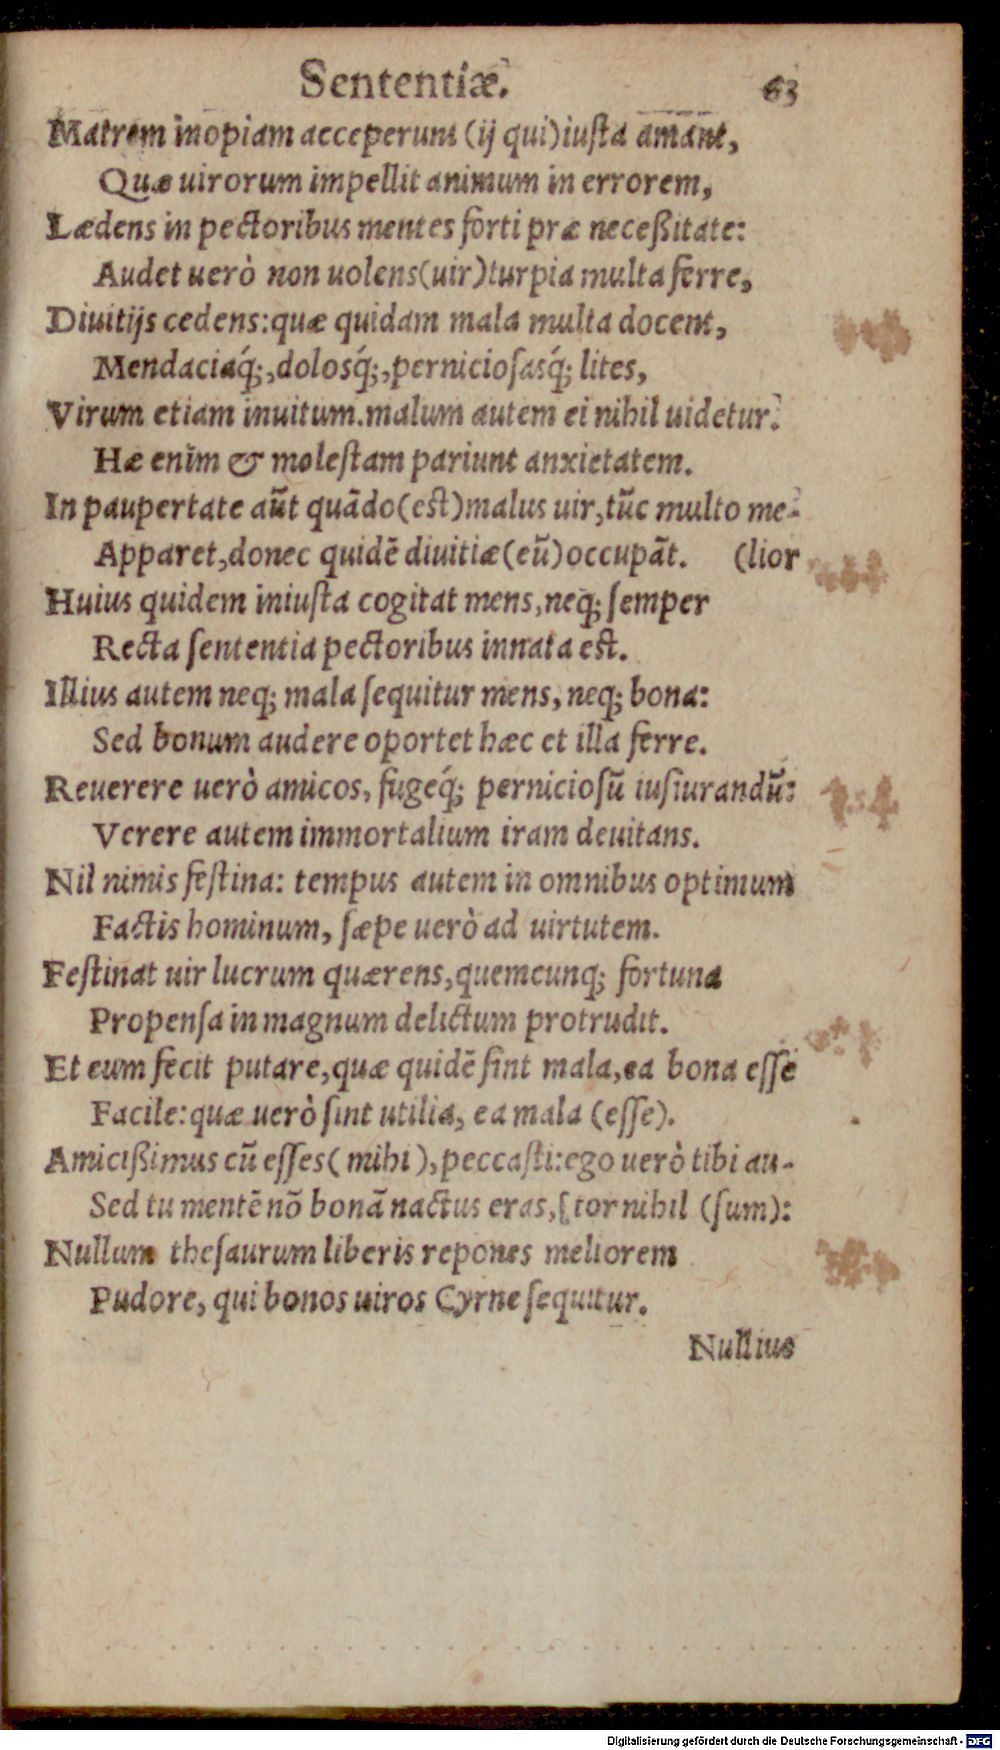 Sententiæ. 63
Matrem inopiam acceperunt (ij qui) iusta amant,
Quæ uirorum impellit animum in errorem,
Lædens in pectoribus mentes forti præ neceßitate:
Audet uerò non uolens (uir) turpia multa ferre,
Diuitijs cedens: quæ quidam mala multa docent,
Mendaciaq́;, dolosq́;, perniciosasq́; lites,
Virum etiam inuitum. malum autem ei nihil uidetur.
Hæ enim & molestam pariunt anxietatem.
In paupertate aũt quãdo (est) malus uir, tũc multo me-
Apparet, donec quidẽ diuitiæ (eũ) occupãt. (lior
Huius quidem iniusta cogitat mens, neq; semper
Recta sententia pectoribus innata est.
Illius autem neq; mala sequitur mens, neq; bona:
Sed bonum audere oportet hæc et illa ferre.
Reuerere uerò amicos, fugeq́; perniciosũ iusiurandũ:
Verere autem immortalium iram deuitans.
Nil nimis festina: tempus autem in omnibus optimum
Factis hominum, sæpe uerò ad uirtutem.
Festinat uir lucrum quærens, quemcunq; fortuna
Propensa in magnum delictum protrudit.
Et eum fecit putare, quæ quidẽ sint mala, ea bona esse
Facile: quæ uerò sint utilia, ea mala (esse).
Amicißimus cũ esses (mihi), peccasti: ego uerò tibi au-
Sed tu mentẽ nõ bonã nactus eras, [tor nihil (sum):
Nullum thesaurum liberis repones meliorem
Pudore, qui bonos uiros Cyrne sequitur.
Nullius
Digitalisierung gefördert durch die Deutsche Forschungsgemeinschaft - DFG